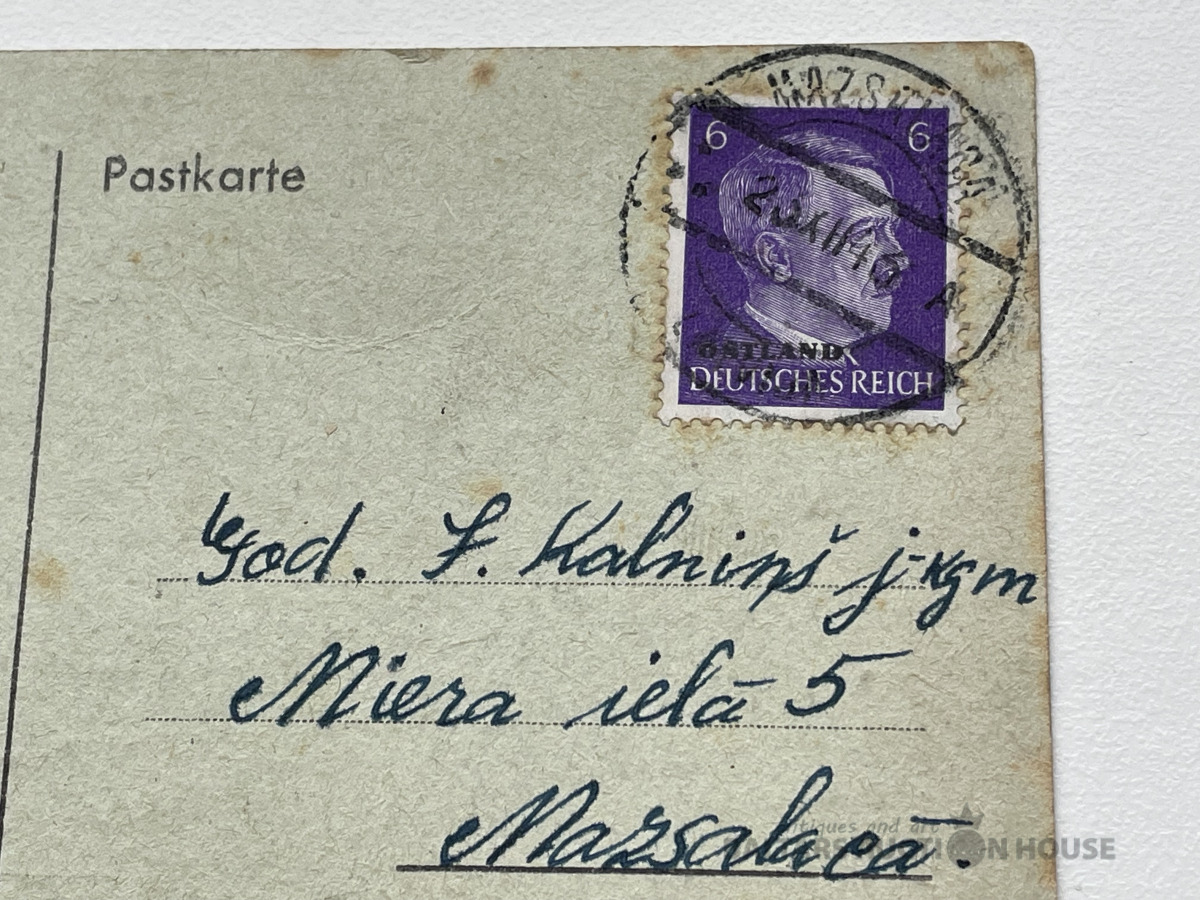 Pastkarte
MAZSALACA
6 6
A
OSTLAND
DEUTSCHES REICH
God. J. Kalniņš j-kgm
Miera ielā 5
Mazsalacā.
antiques and art
HOUSE